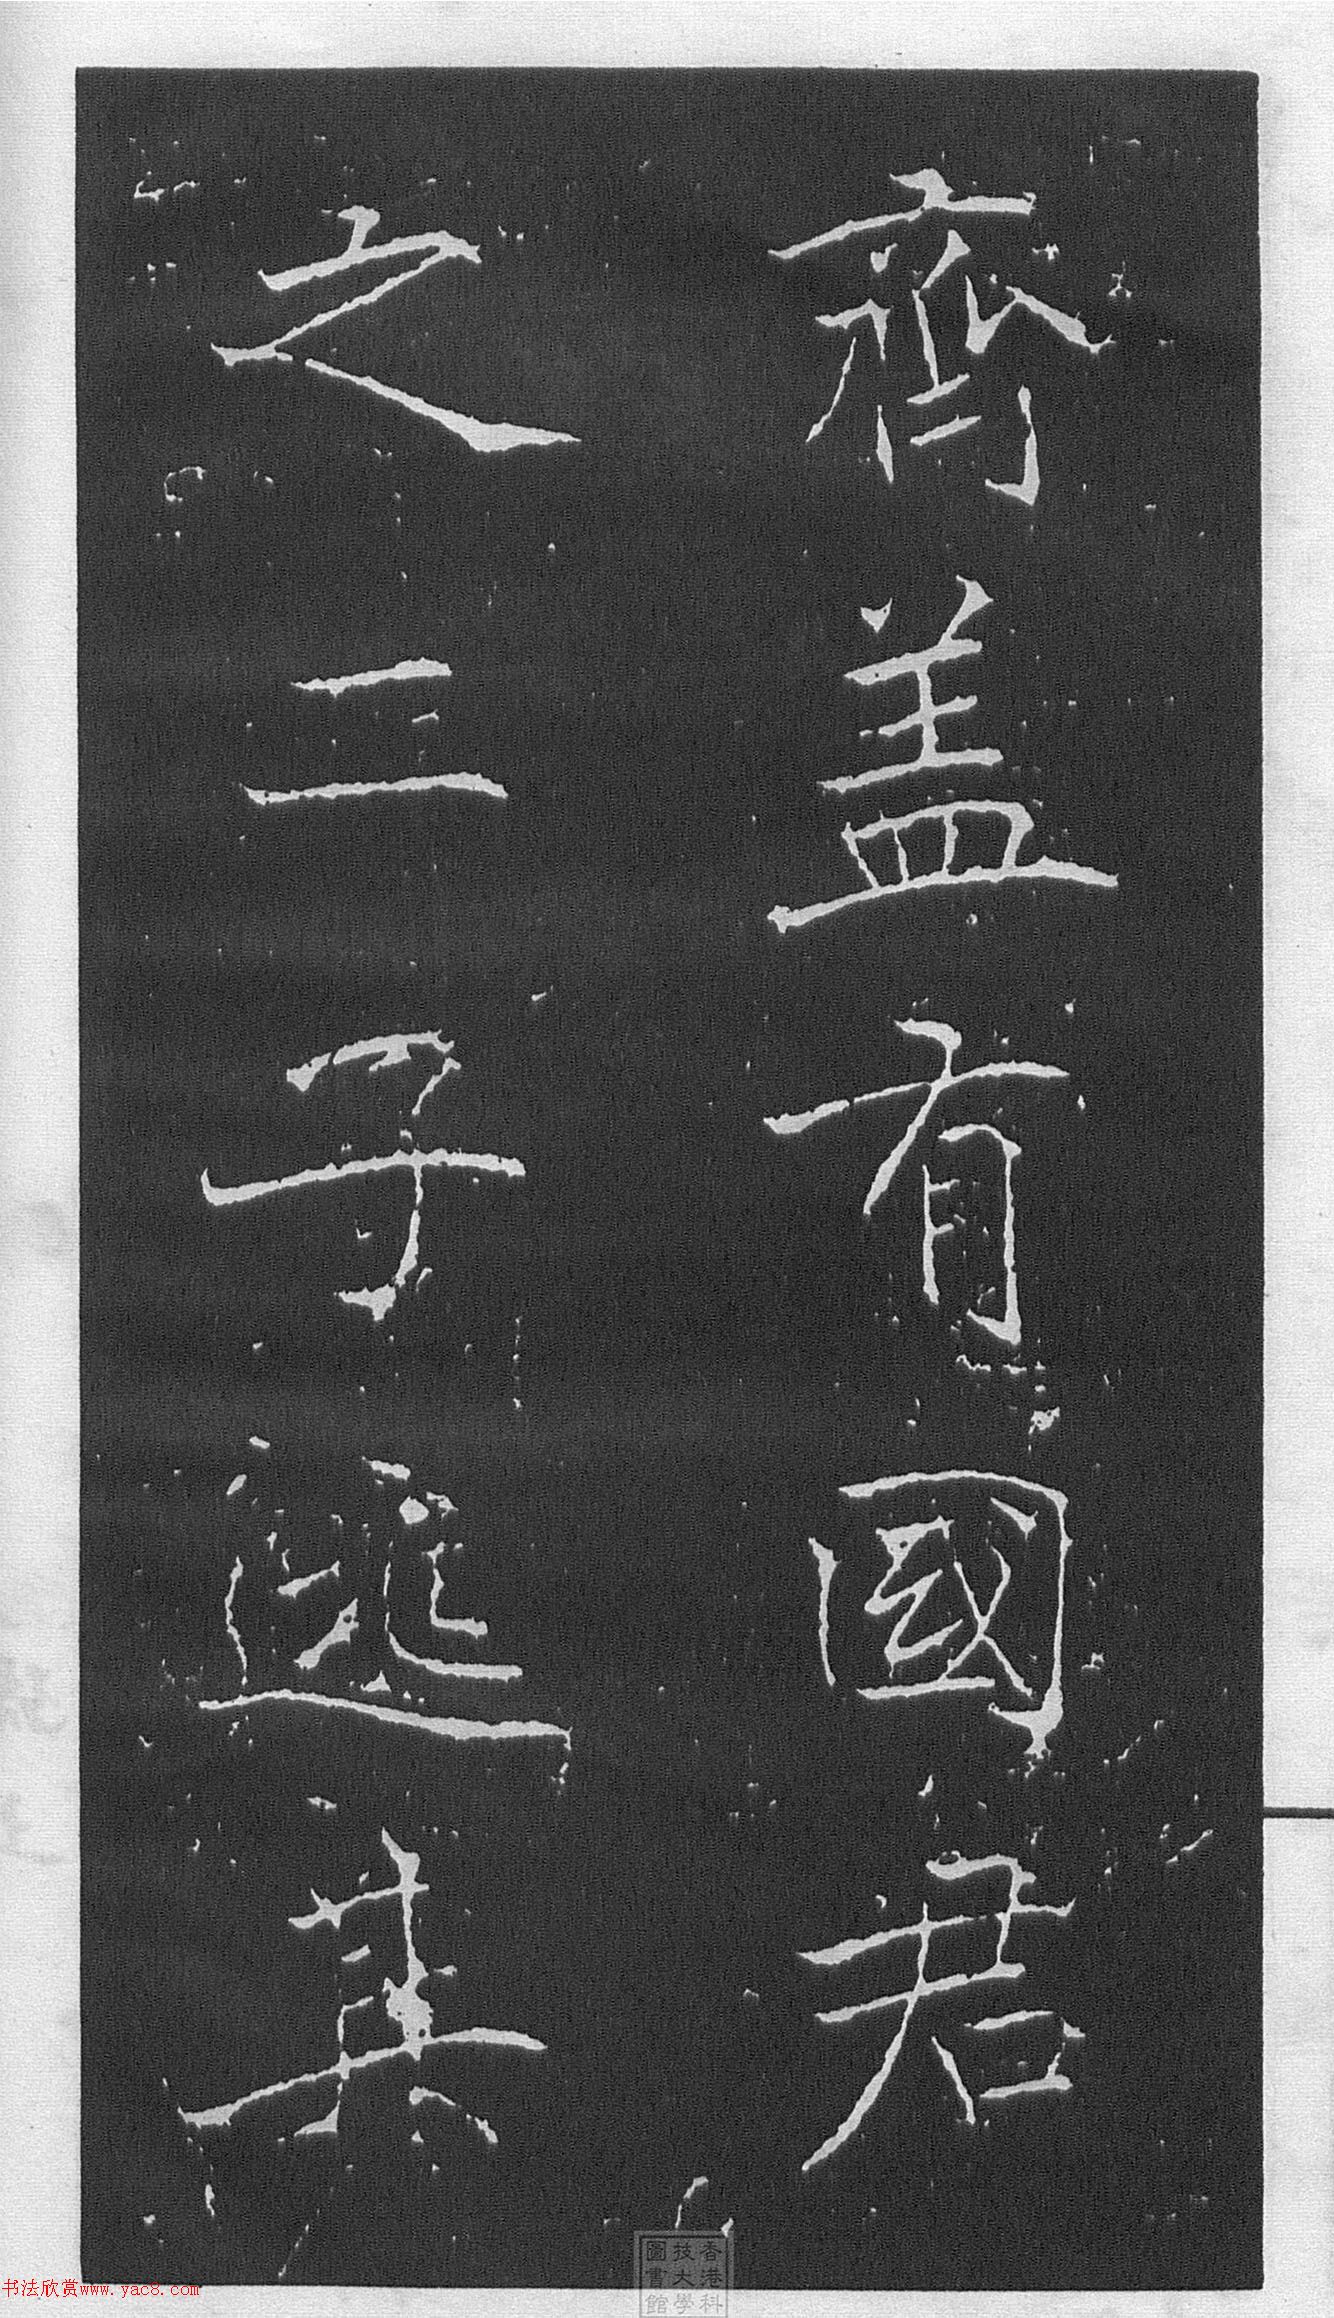 齊盖有國君
之二子逃其
香港科
技大學
圖書館
书法欣赏www.yac8.com